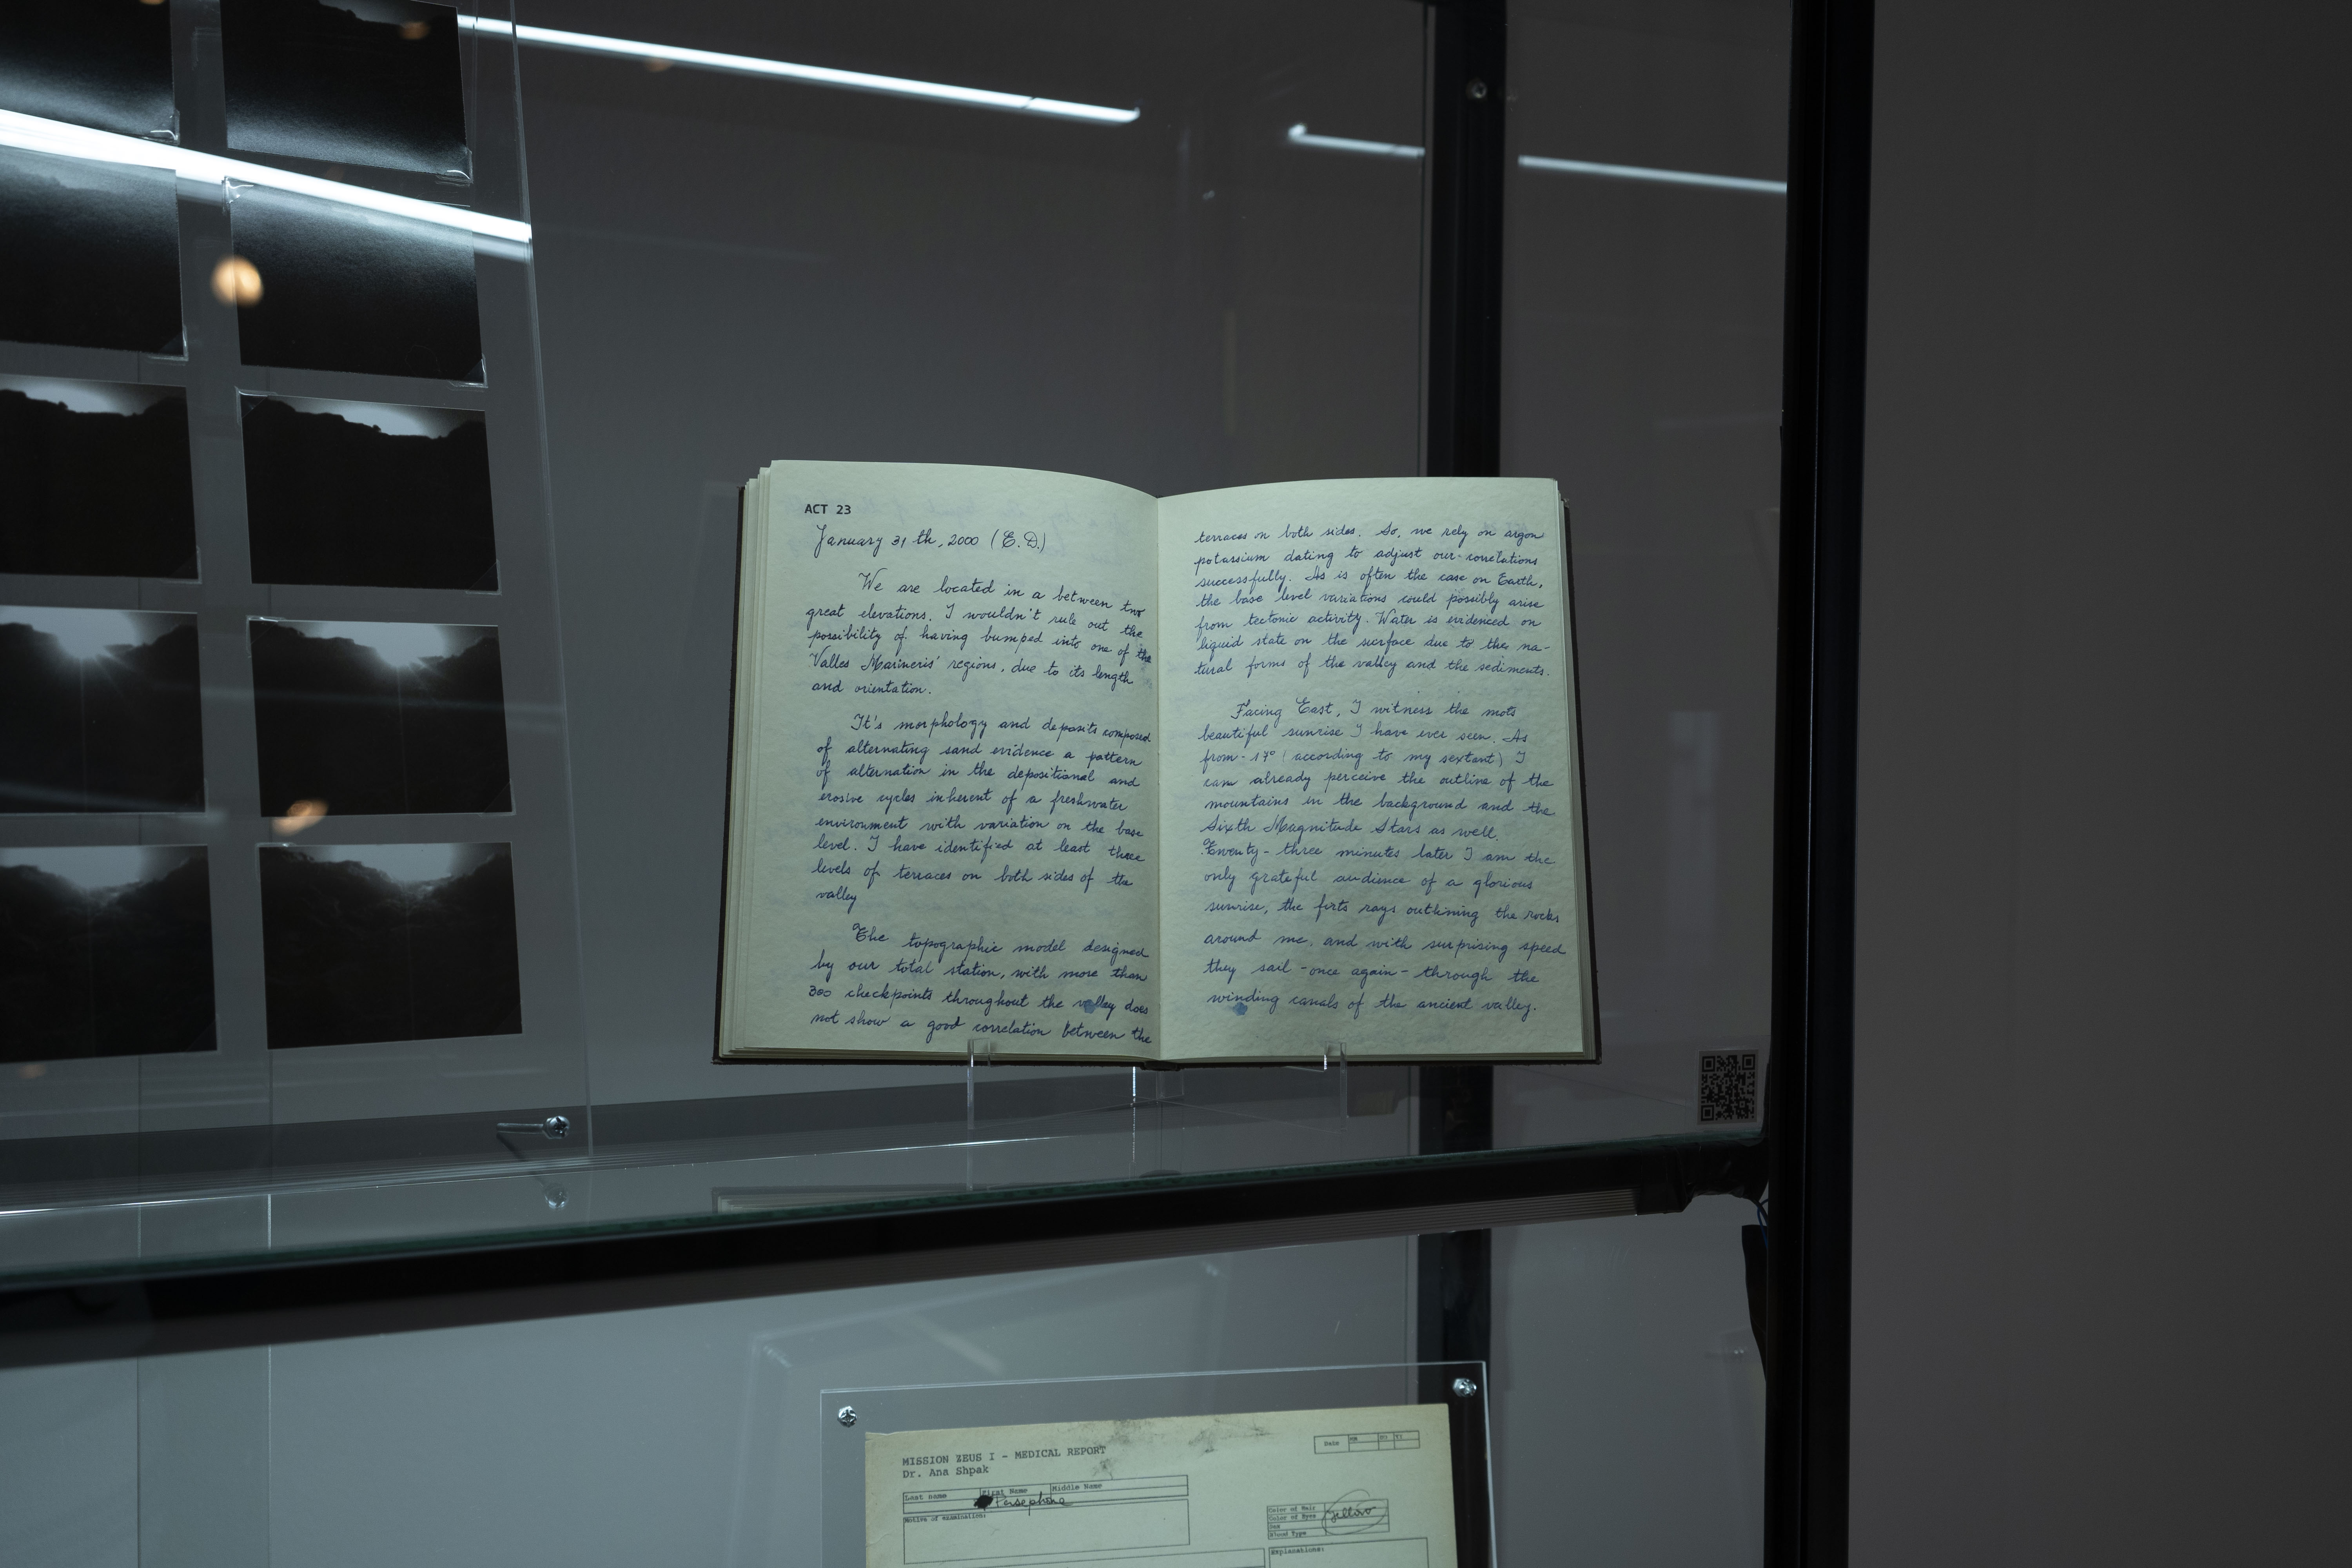 ACT 23
January 31 th, 2000 (E.D.)
We are located in a between two
great elevations. I wouldn't rule out the
possibility of having bumped into one of the
Valles Marineris' regions, due to its length
and orientation.
It's morphology and deposits composed
of alternating sand evidence a pattern
of alternation in the depositional and
erosive cycles inherent of a freshwater
environment with variation on the base
level. I have identified at least three
levels of terraces on both sides of the
valley
The topographic model designed
by our total station, with more than
300 checkpoints throughout the valley does
not show a good correlation between the
terraces on both sides. So, we rely on argon
potassium dating to adjust our correlations
successfully. As is often the case on Earth,
the base level variations could possibly arise
from tectonic activity. Water is evidenced on
liquid state on the surface due to the na-
tural forms of the valley and the sediments.
Facing East, I witness the mots
beautiful sunrise I have ever seen. As
from -17° (according to my sextant) I
can already perceive the outline of the
mountains in the background and the
Sixth Magnitude Stars as well.
Twenty-three minutes later I am the
only grateful audience of a glorious
sunrise, the firts rays outlining the rocks
around me, and with surprising speed
they sail -once again- through the
winding canals of the ancient valley.
MISSION ZEUS I - MEDICAL REPORT
Dr. Ana Shpak
Date
Last name First Name Middle Name
Persephone
Motive of examination:
Color of Hair
Color of Eyes
Sex
Blood Type
yellow
Explanations: